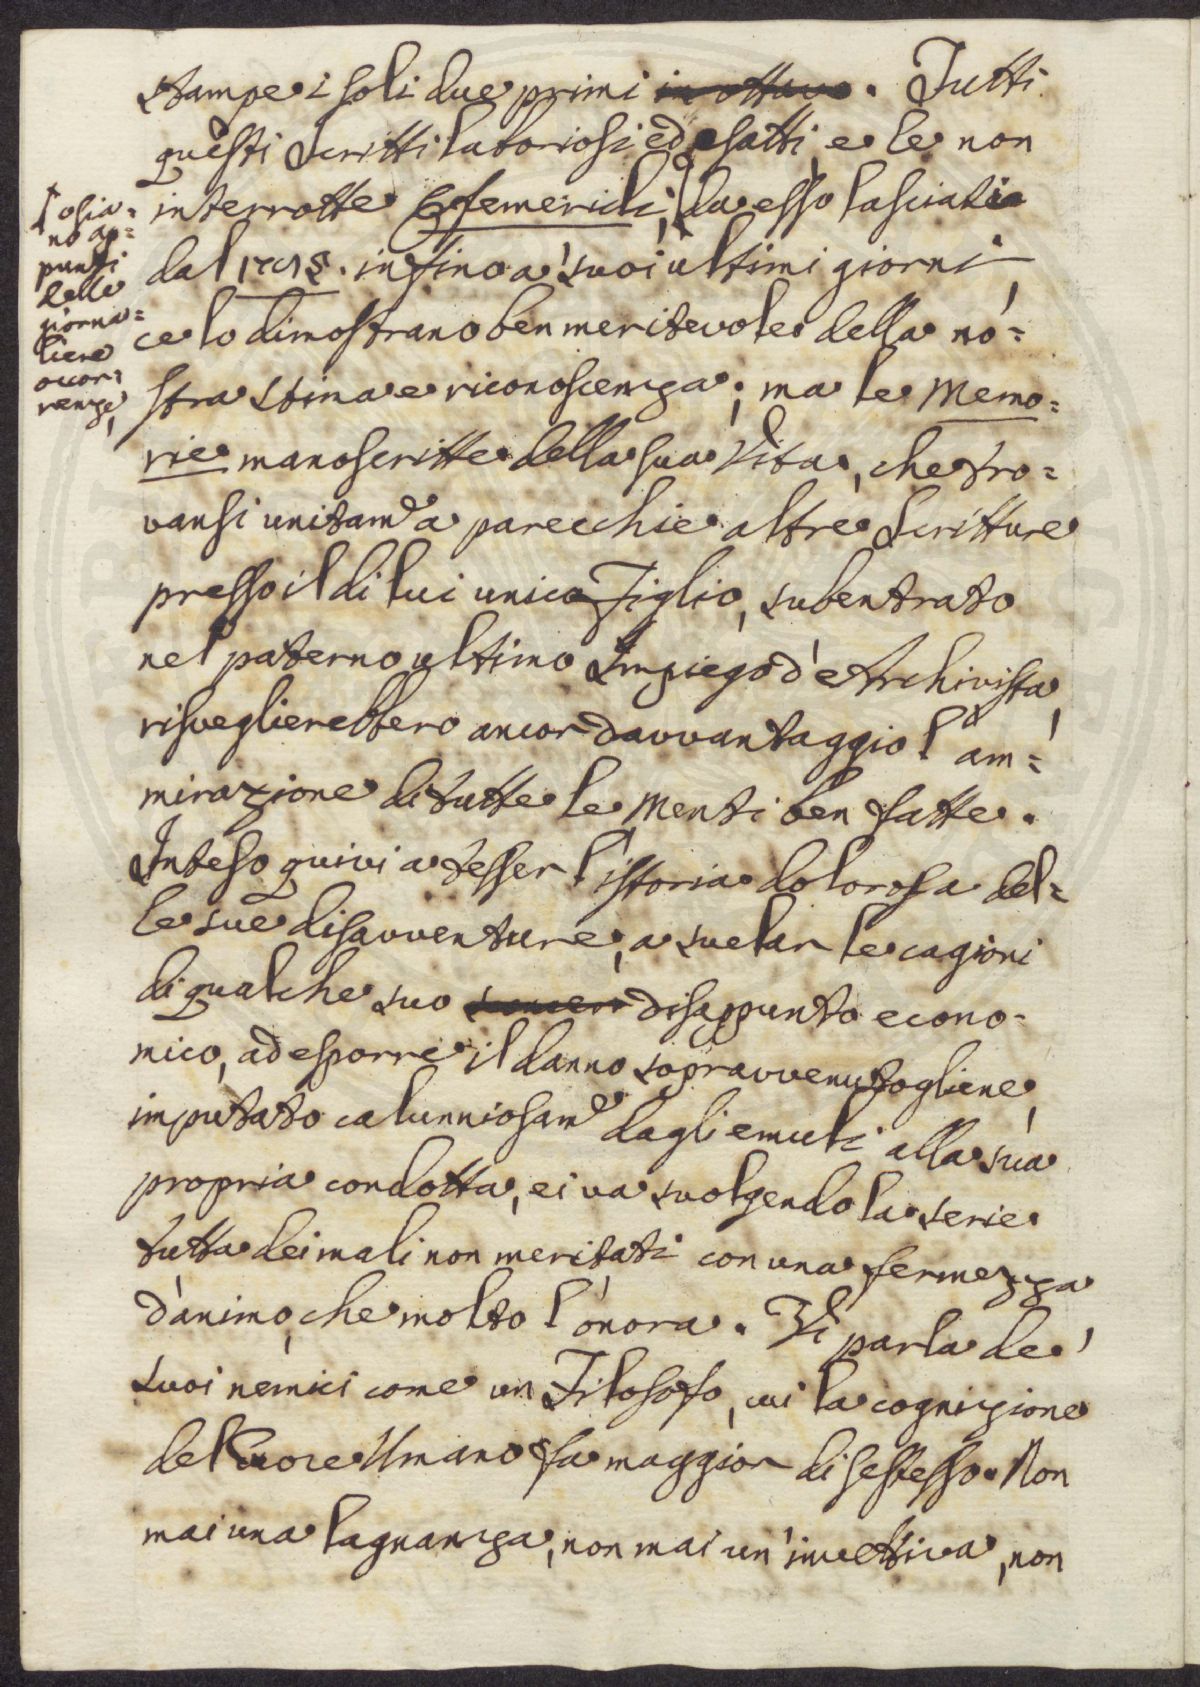 stampe i soli due primi in ottavo. Tutti
questi Scritti laboriosi ed esatti, e le non
interrotte Efemeridi, da esso lasciati
dal . infino a' suoi ultimi giorni,
ce lo dimostrano ben meritevole della no=
stra stima e riconoscenza; ma le Memo=
rie manoscritte della sua Vita, che tro=
vansi unitamte a parecchie altre Scritture
presso il di lui unico Figlio, subentrato
nel paterno ultimo Impiego d'Archivista,
risveglierebbero ancor davvantaggio l'am=
mirazione di tutte le Menti ben fatte.
Inteso quivi a tesser l'istoria dolorosa del=
le sue disavventure, a svelar le cagioni
di qualche suo disappunto econo=
mico, ad esporre il danno sopravvenutogliene,
imputato calunniosamte dagli emuli alla sua
propria condotta, ei va svolgendo la serie
tutta dei mali non meritati con una fermezza
d'animo, che molto l'onora. Vi parla de'
suoi nemici come un Filosofo, cui la cognizione
del Cuore Umano fa maggior di se stesso. Non
mai una lagnanza, non mai un'invettiva, non
osia=
no ap=
punti
delle
giorna=
liere
occor=
renze,